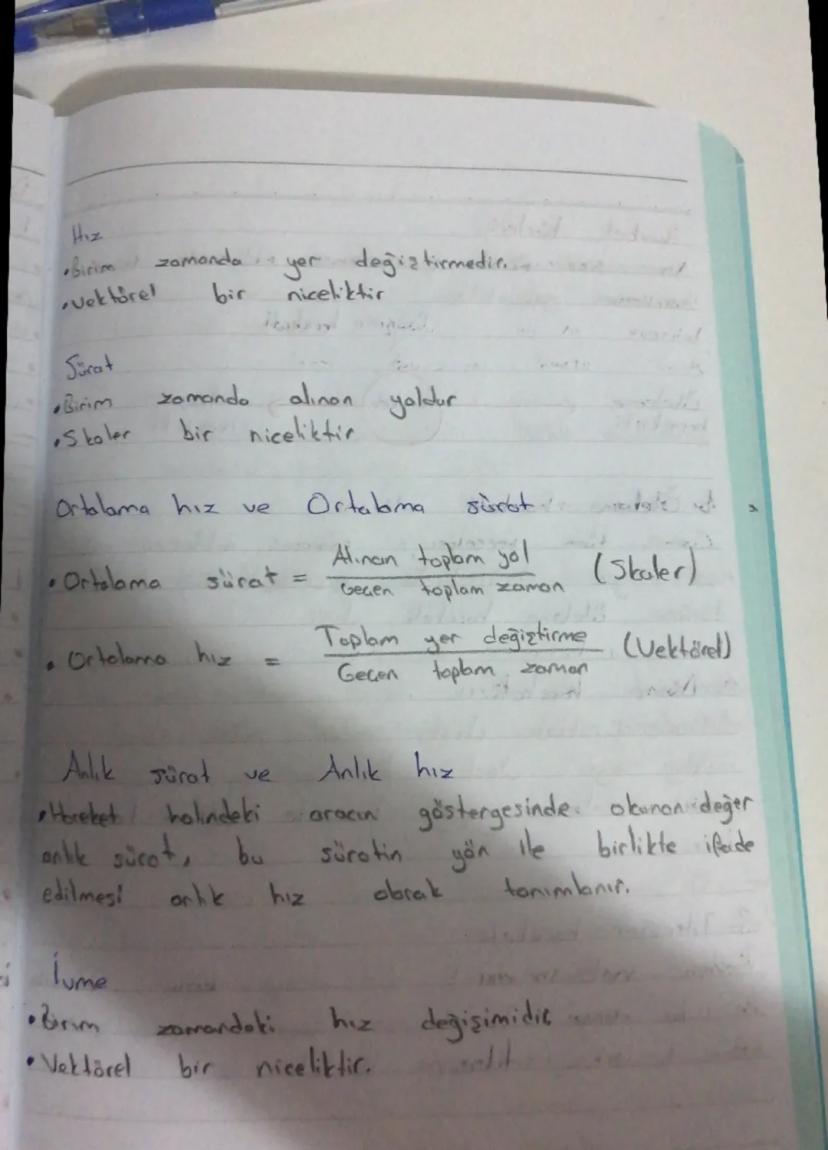 Hız
• Birim zamanda yer değiştirmedir.
• Vektörel bir niceliktir
Sürat
• Birim zamanda alınan yoldur
• Skaler bir niceliktir
Ortalama hız ve Ortalama sürat
• Ortalama sürat = Alınan toplam yol / Geçen toplam zaman (Skaler)
• Ortalama hız = Toplam yer değiştirme / Geçen toplam zaman (Vektörel)
Anlık sürat ve Anlık hız
• Hareket halindeki aracın göstergesinde okunan değer
anlık sürat, bu süratin yön ile birlikte ifade
edilmesi anlık hız olarak tanımlanır.
İvme
• Birim zamandaki hız değişimidir
• Vektörel bir niceliktir.